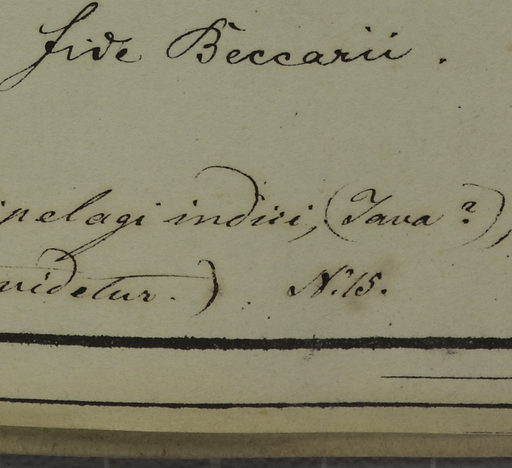 fide Beccarii.
ipelagi indici, (Java?),
videtur.) N. 15.